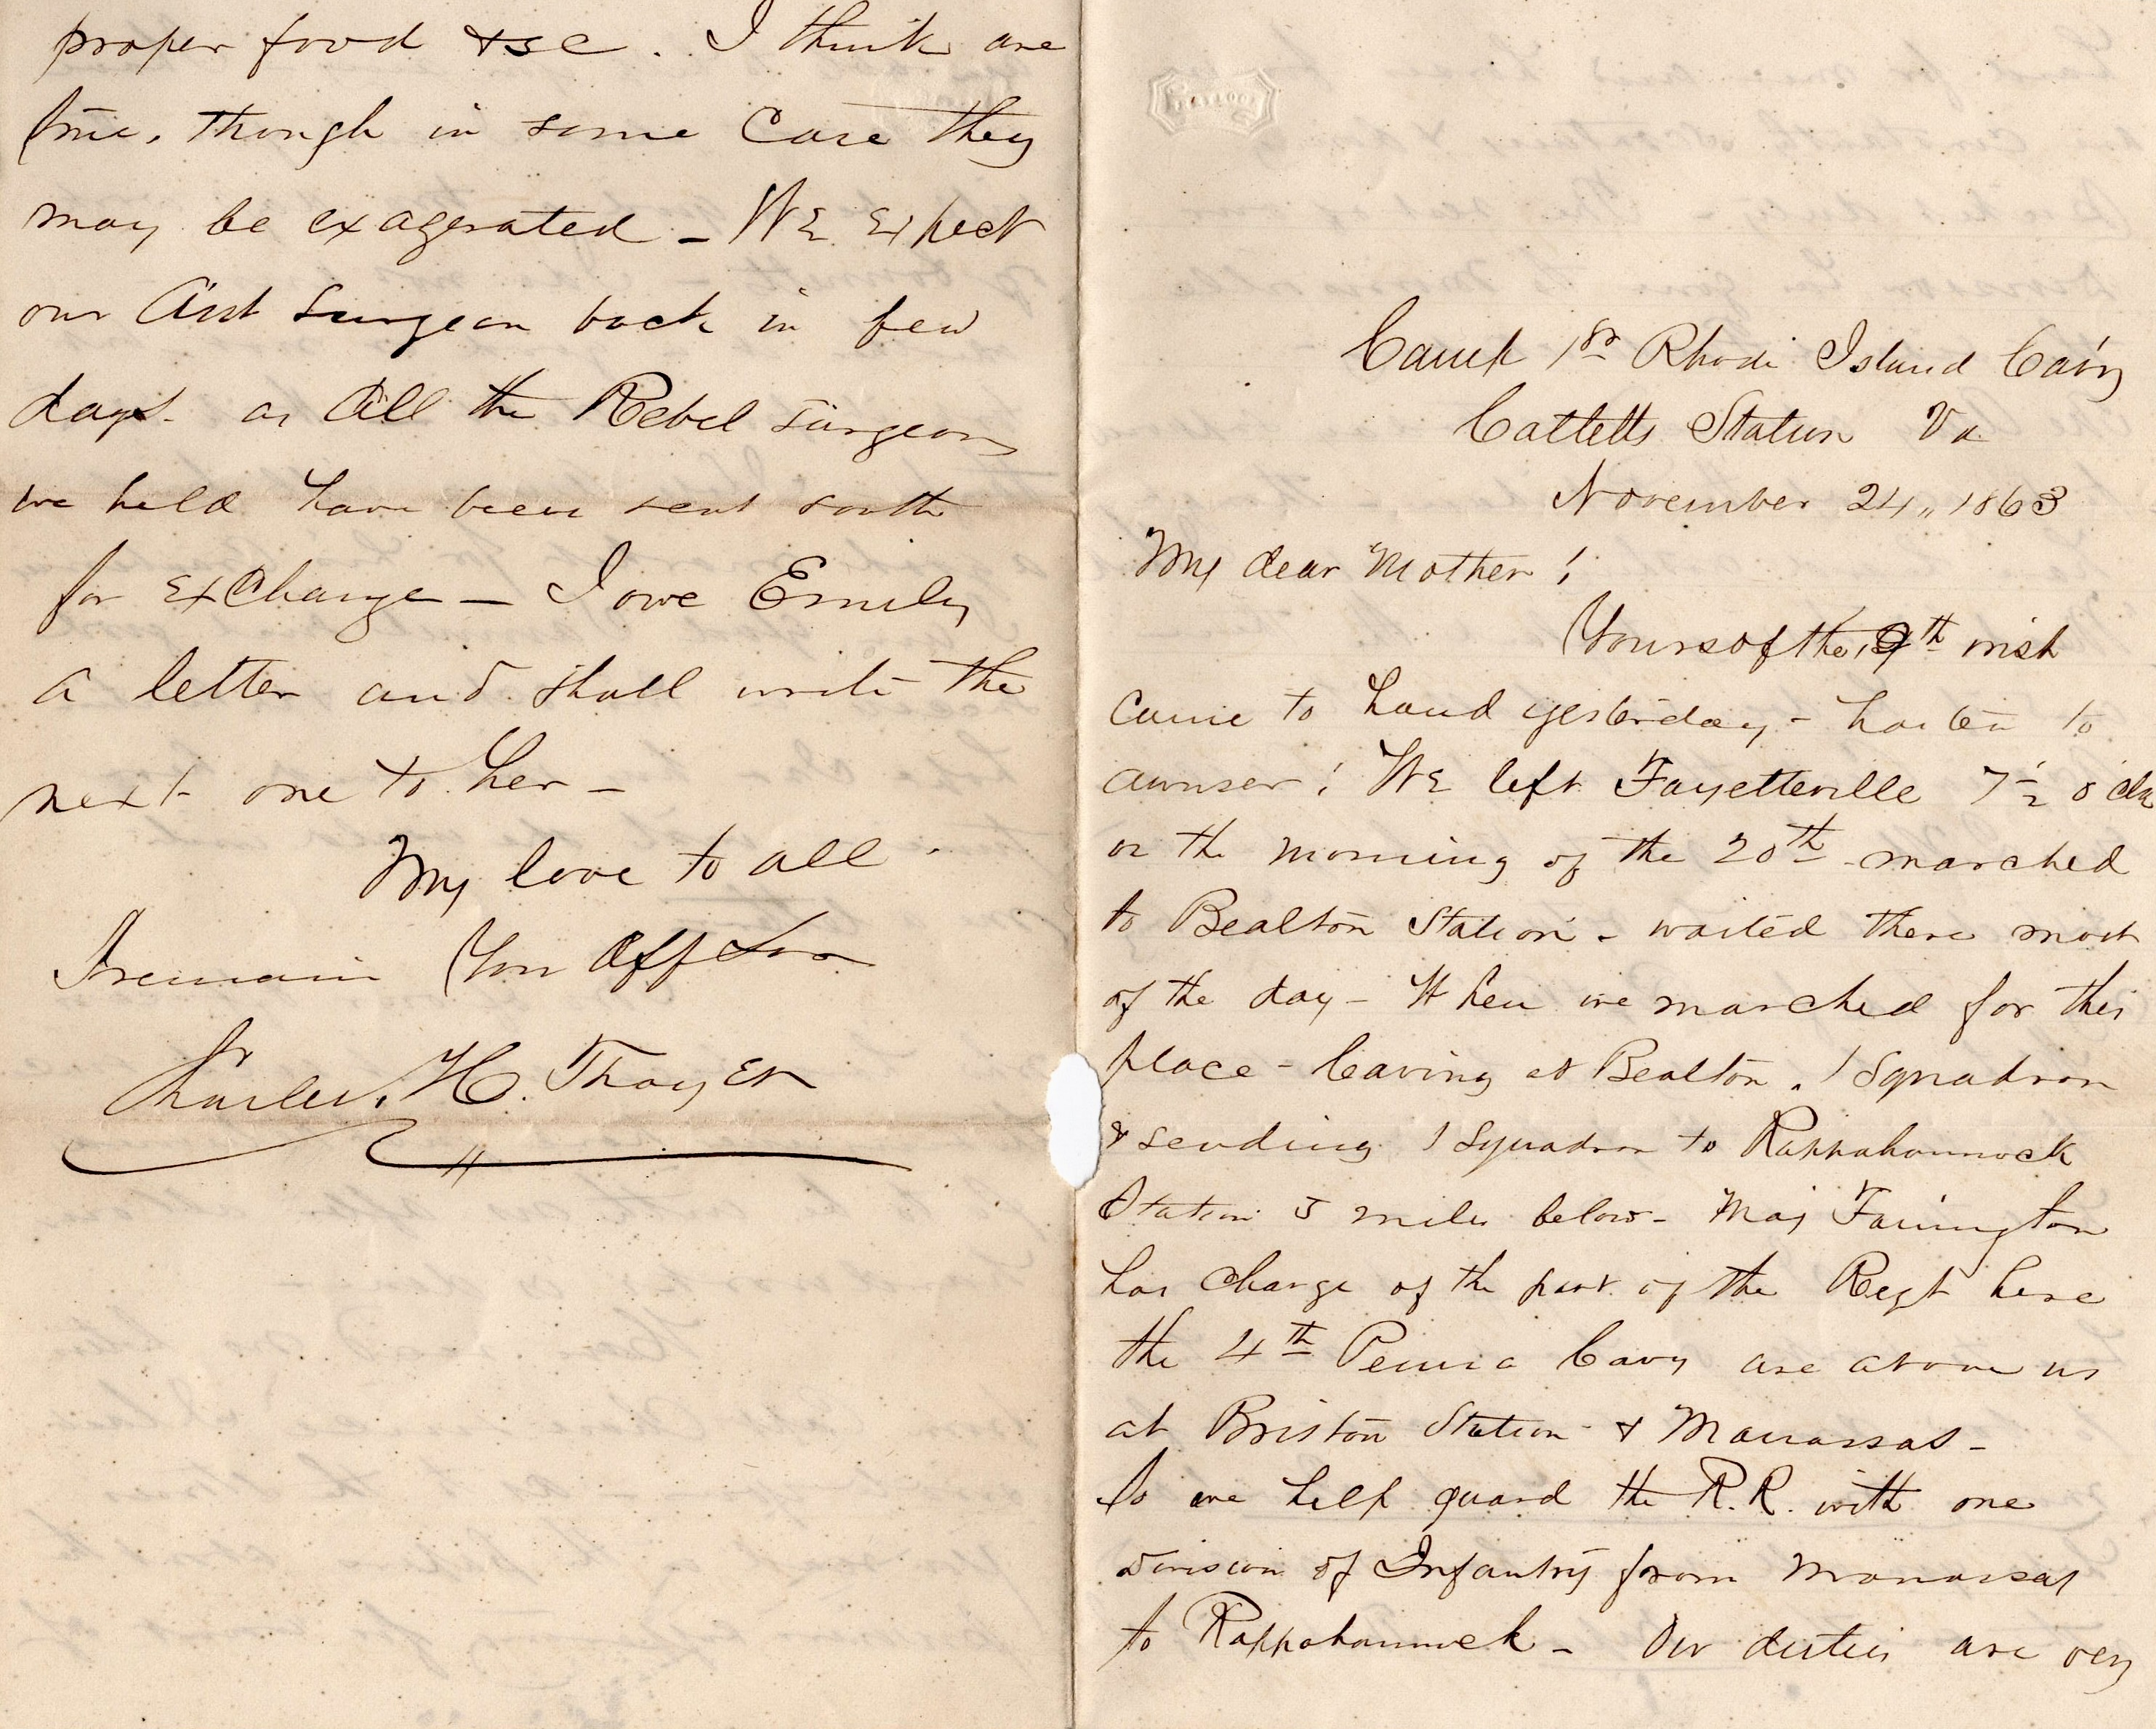 proper food &c. I think are
true, though in some case they
may be exagerated - We expect
our Asst Surgeon back in few
days - as all the Rebel Surgeons
we held have been sent south
for exchange - I owe Emily
a letter and shall write the
next one to her -
My love to all -
I remain Your Aff Son
Charles. H. Thayer
Camp 1st Rhode Island Cav'y
Catletts Station Va
November 24,, 1863
My dear Mother !
Yours of the 19th inst
came to hand yesterday - hasten to
aunser ! We left Fayetteville 7½ o'clk
on the morning of the 20th marched
to Bealton Station - waited there most
of the day - When we marched for this
place - leaving at Bealton . 1 Squadron
& sending 1 Squadron to Rappahannock
Station 5 miles below - Maj Farrington
has charge of the part of the Regt here
the 4th Penna Cavy are above us
at Briston Station & Manassas -
So we help guard the R.R. with one
Division of Infantry from Manassas
to Rappahannock - Our duties are very